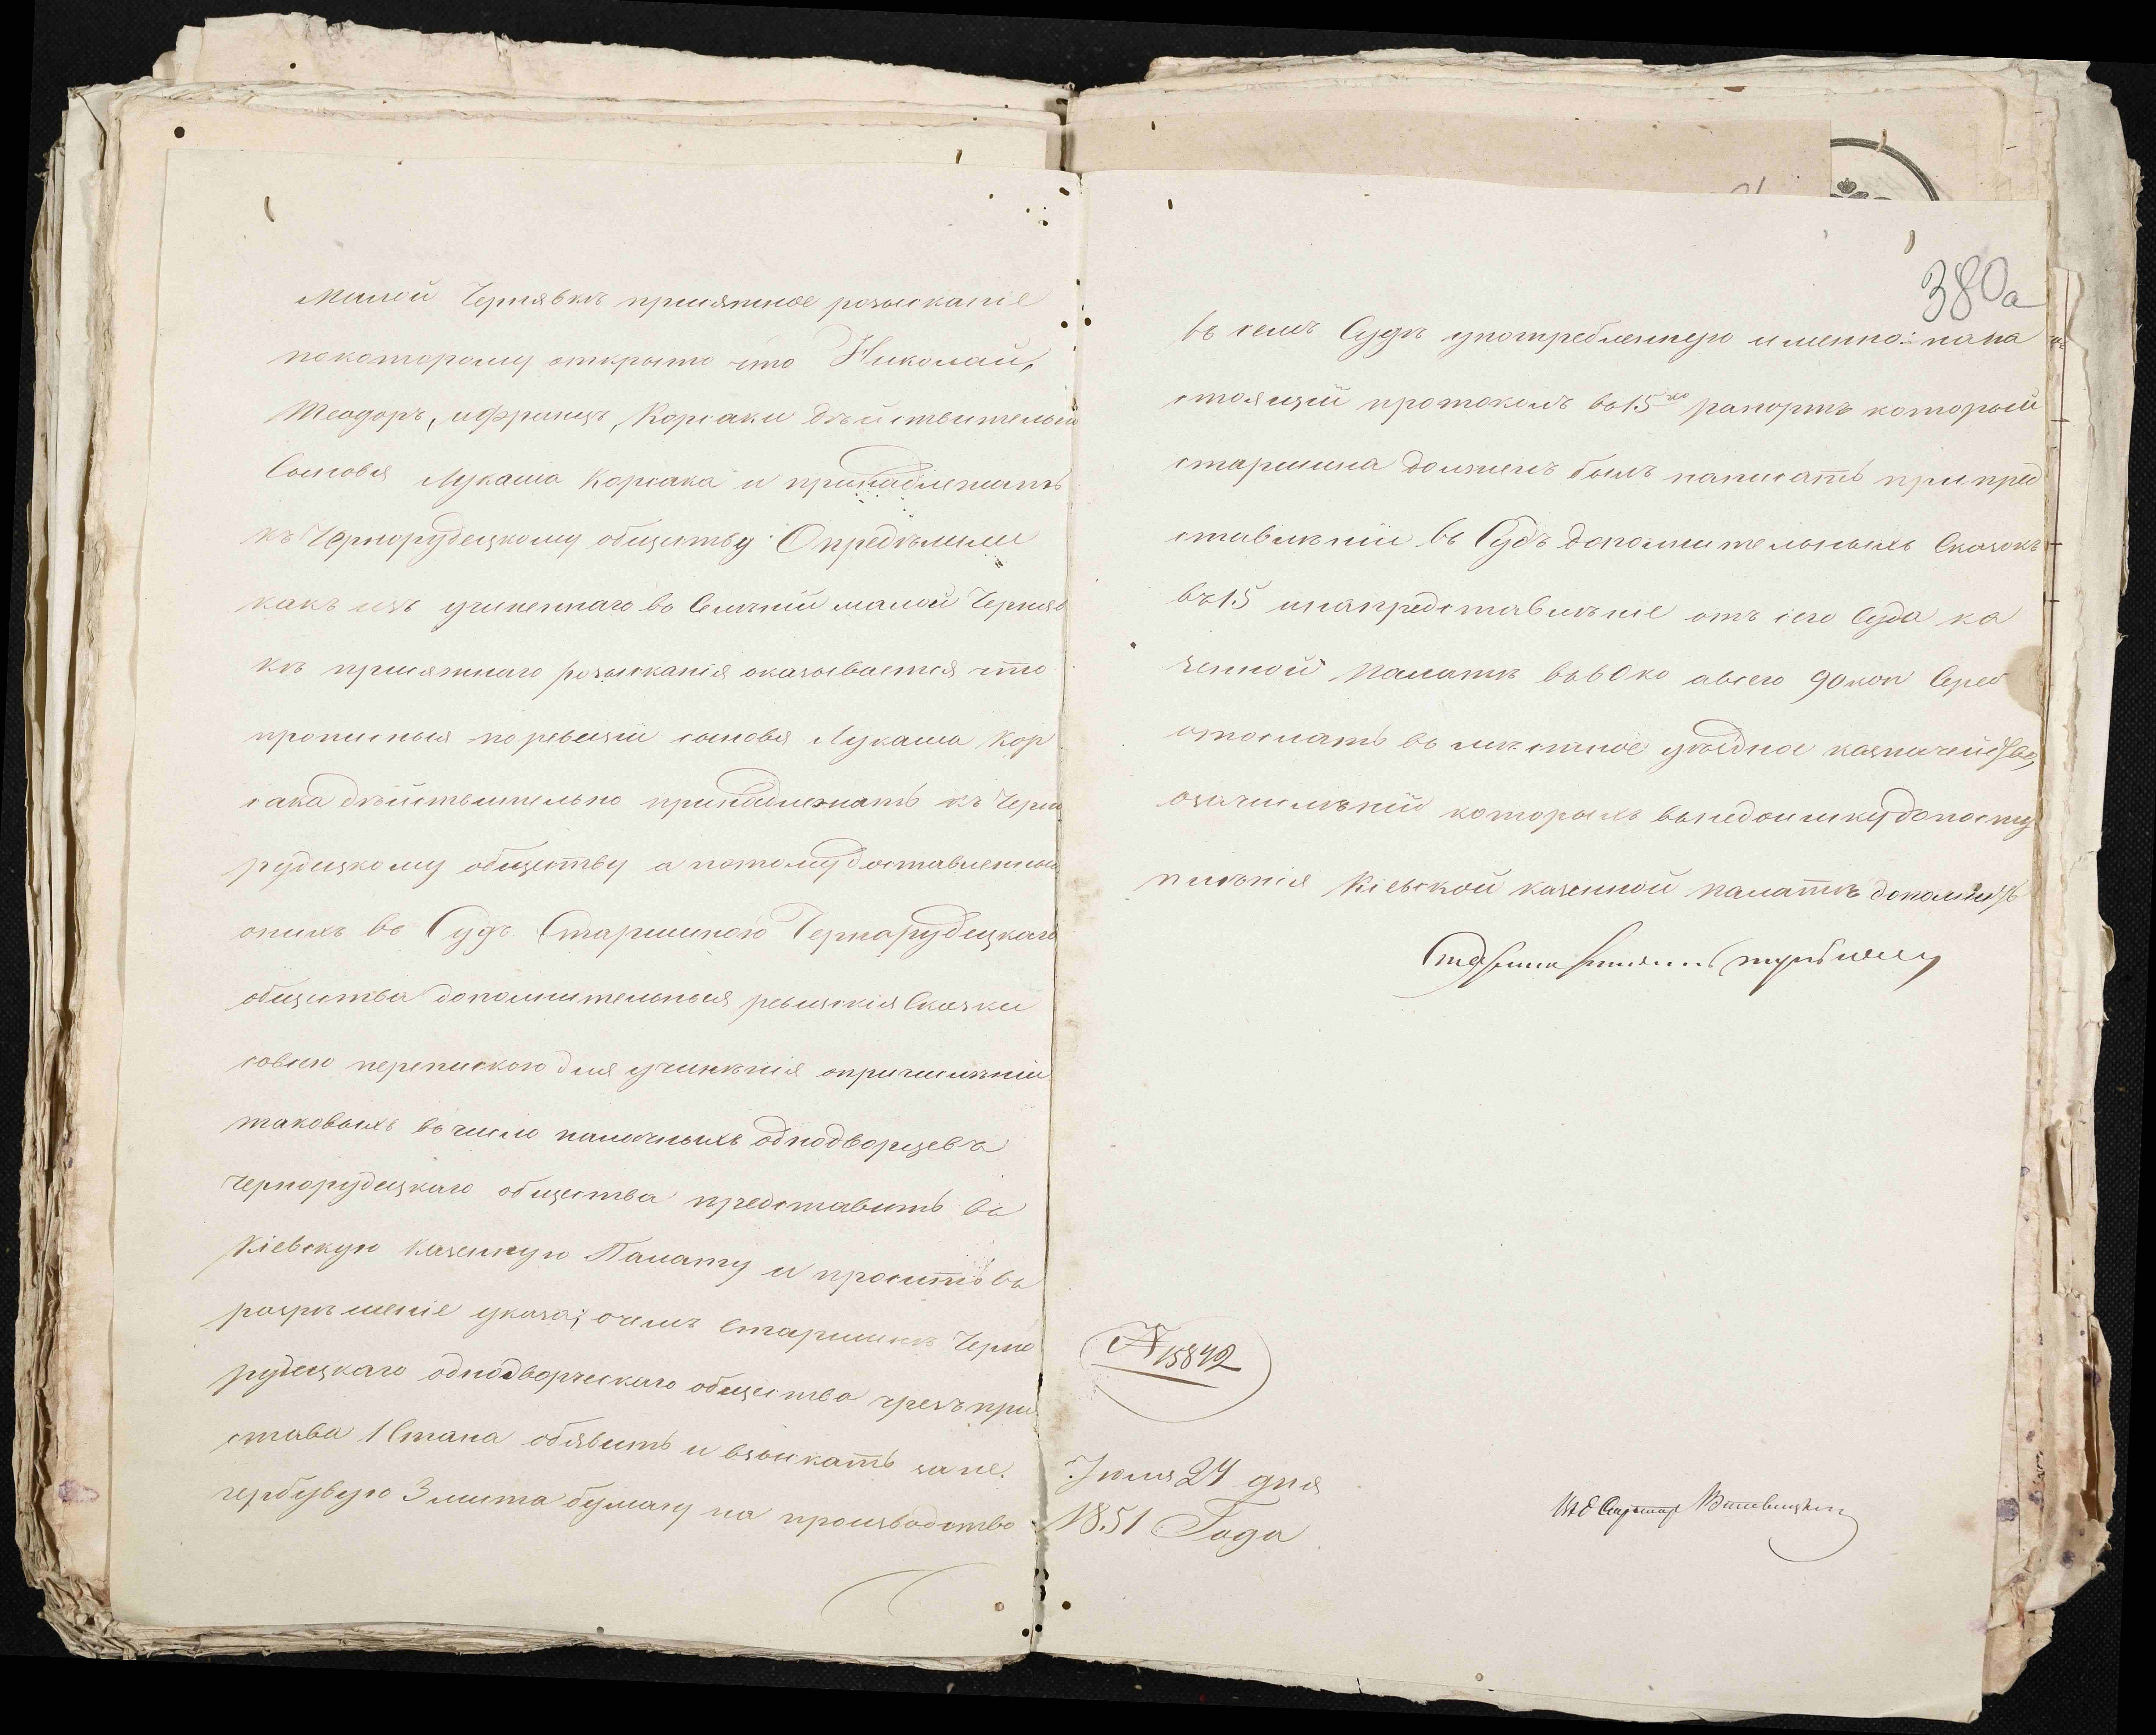 малой Чернявкѣ присяжное розысканіе
покоторому открыто что Николай,
Теодоръ, иФранцъ, Корсаки дѣйствительно
Сыновья Лукаша Корсака и принадлежатъ
къ Чернорудецкому обществу Опредѣлили
какъ изъ учиненнаго во Селеніи малой Черняв
кѣ присяжнаго розысканія оказывается что
прописныя поревизіи сыновья Лукаша Кор
сака дѣйствительно принадлежатъ къ Черно
рудецкому обществу а потому доставленныя
онихъ во Судъ Старшиною Чернорудецкаго
общества дополнительныя ревизскія Сказки
совсею перепискою для учиненія опричисленіи
таковыхъ вчисло наличныхъ однодворцевъ
Чернорудецкаго общества представить въ
Кіевскую Казенную Палату и просить въ
разрѣшеніе указа; очемъ Старшинѣ Черно
рудецкаго однодворческаго общества чрезъ при
става 1 Стана обявить и взыскать зане.
гербувую 3 листа бумагу на производство
380а
въ семъ Судѣ употребленную именно: нана
стоящій протоколъ во15 рапортъ который
старшина долженъ былъ написать припред
ставленіи въ Судъ дополнительныхъ Сказокъ
въ15 инапредставленіе отъ сего Суда ка
зенной Палатѣ въ60ко авсего 90коп Сереб
отослать въ мѣстное уѣздное казначейство,
озачисленіи которыхъ внедоимкудопосту
пленія Кіевской казенной палатѣ дополнить
№ 15842
Іюля 24 дня
1851 Года